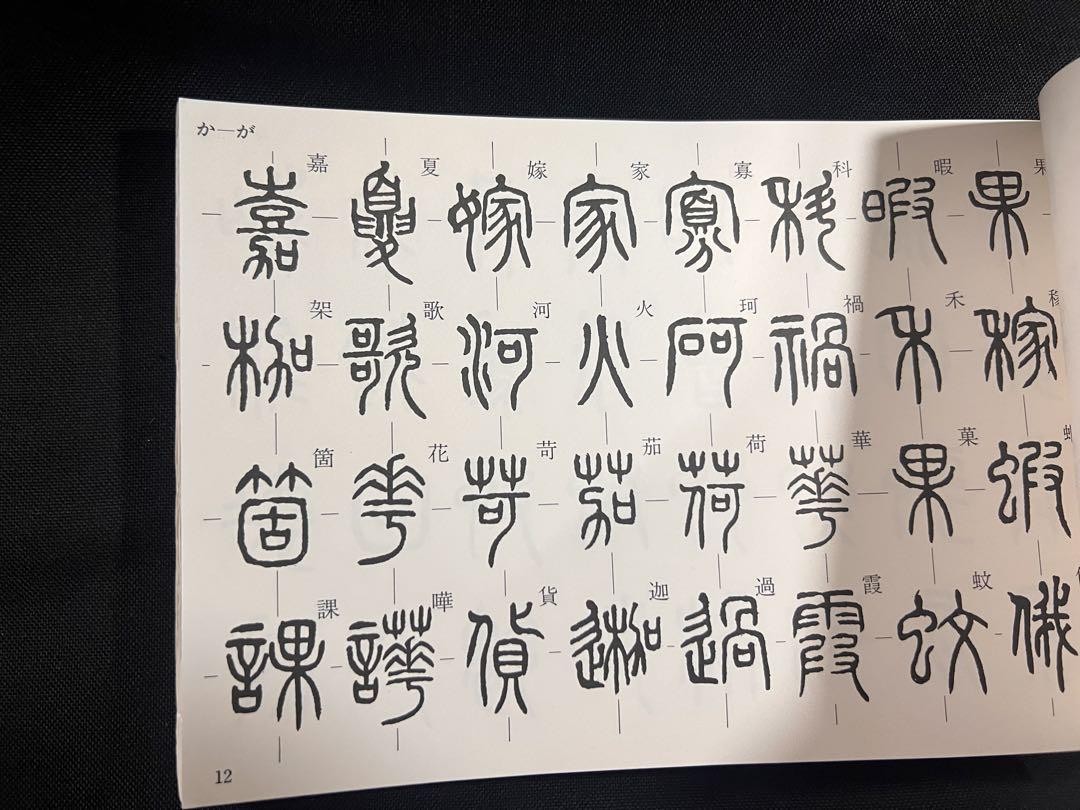 か—が
嘉 夏 嫁 家 寡 科 暇 果
架 歌 河 火 珂 禍 禾 稼
箇 花 苛 茄 荷 華 菓 蝦
課 嘩 貨 迦 過 霞 蚊 俄
12